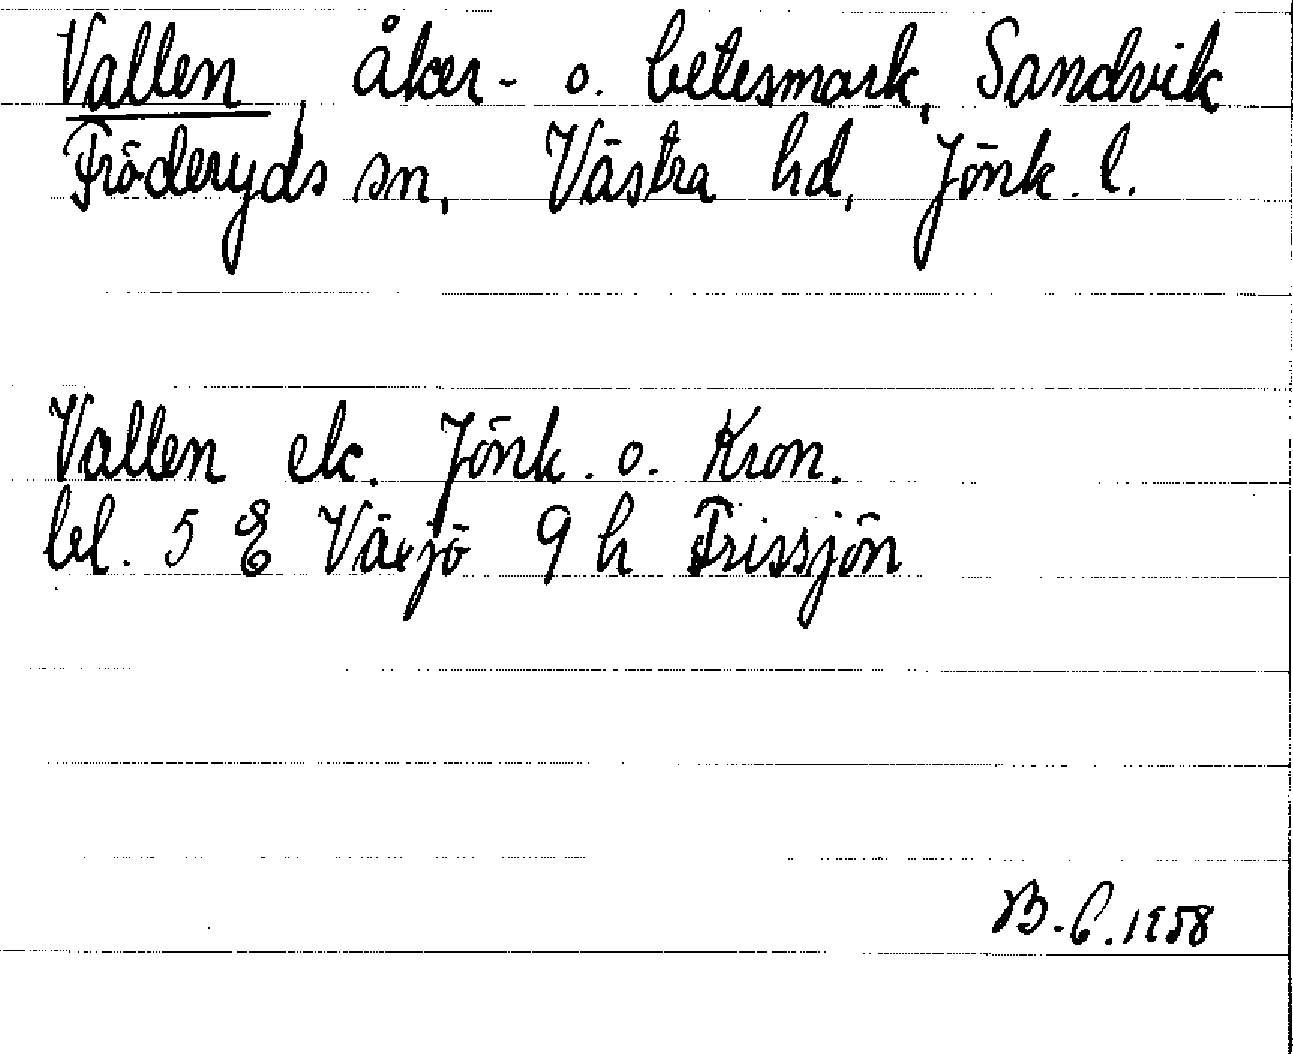 Vallen, åker- o. betesmark, Sandvik
Fröderyds sn, Västra hd, Jönk. l.
Vallen ek. Jönk. o. Kron.
bl. 5 E Växjö 9 h Frissjön
B.C. 1958